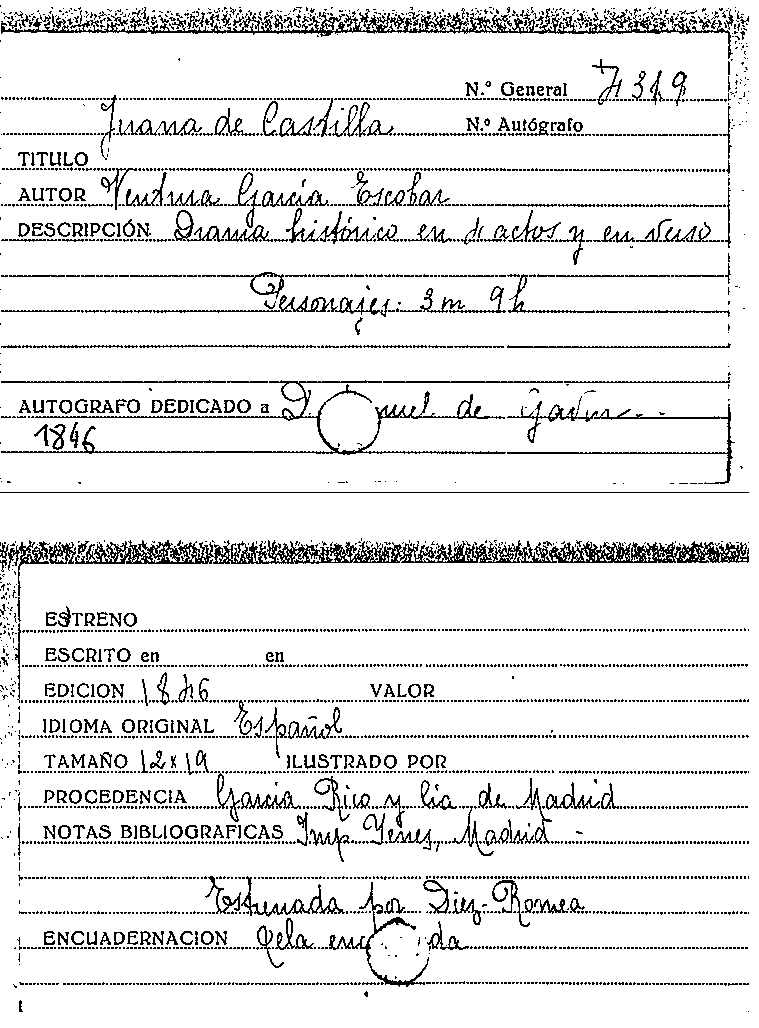 N.º General 4319
Juana de Castilla N.º Autógrafo
TITULO
AUTOR Ventura García Escobar
DESCRIPCIÓN Drama histórico en 4 actos y en verso
Personajes: 3 m 9 h
AUTOGRAFO DEDICADO a D de
1846
ESTRENO
ESCRITO en en
EDICION 1846 VALOR
IDIOMA ORIGINAL Español
TAMAÑO 12x19 ILUSTRADO POR
PROCEDENCIA Garcia Rico y Cia de Madrid
NOTAS BIBLIOGRAFICAS Imp Yenes, Madrid -
Estrenada por Diez-Romea
ENCUADERNACION Tela